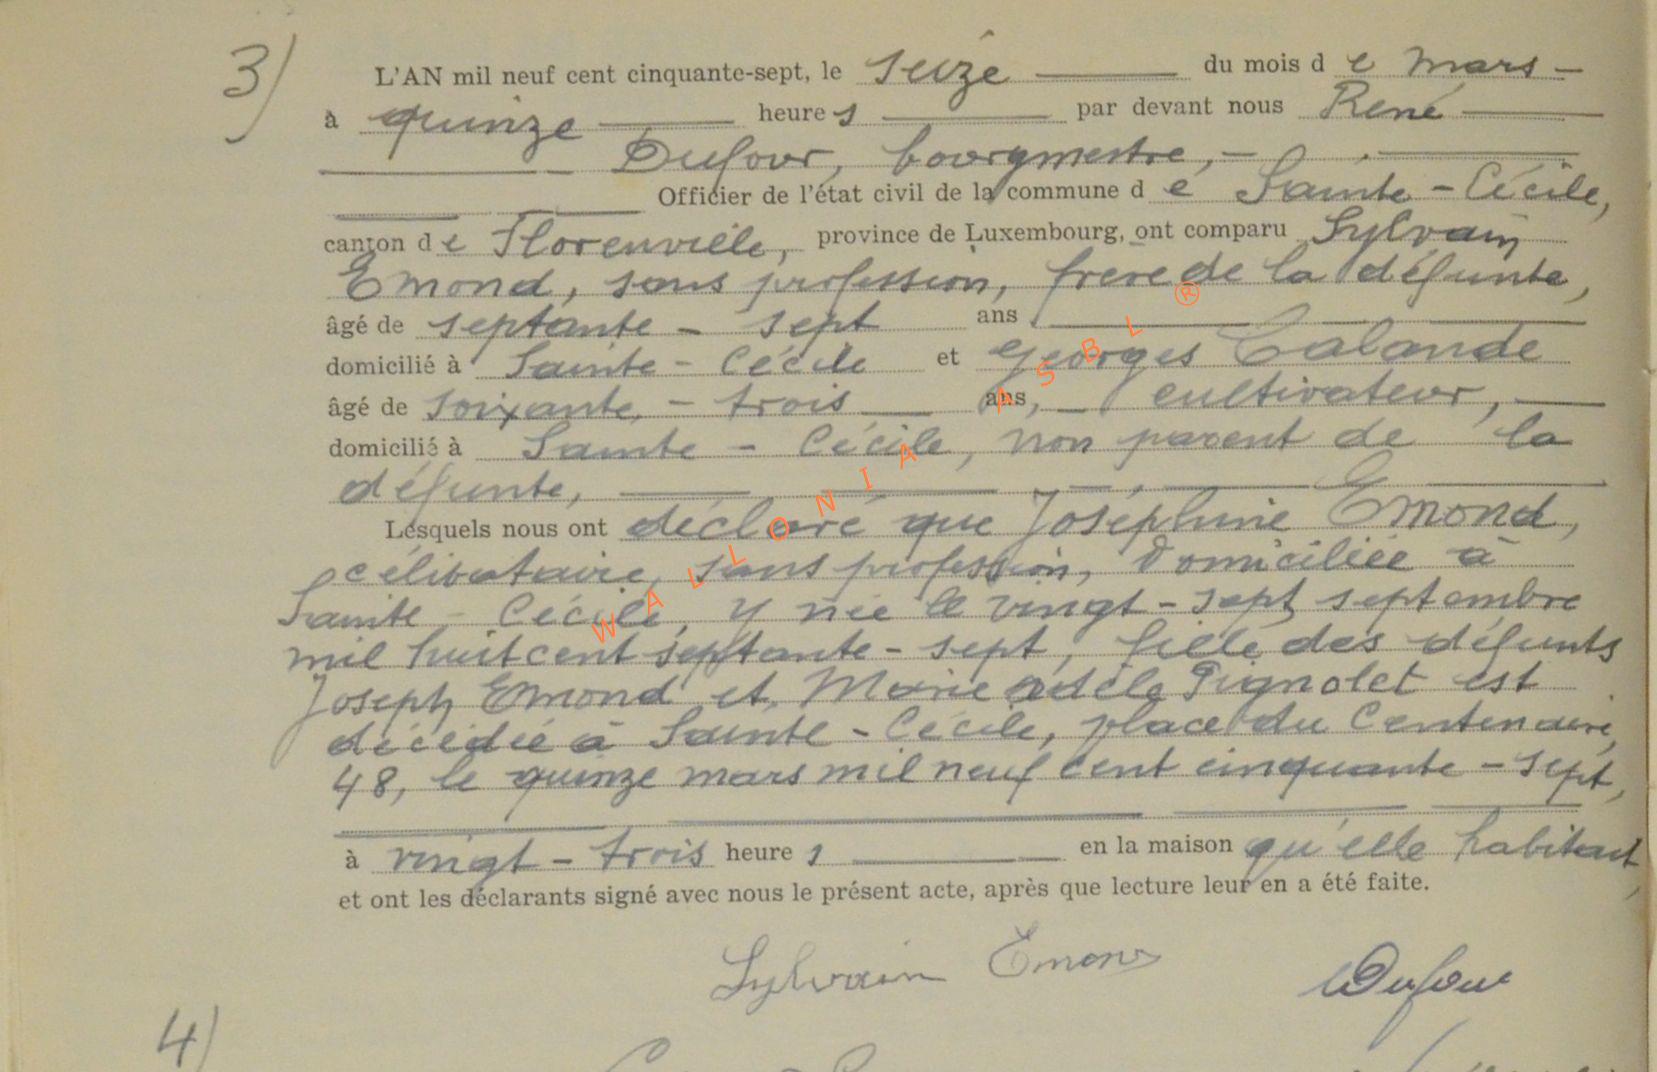 3)
L'AN mil neuf cent cinquante-sept, le seize du mois de mars
à quinze heures par devant nous René
Dufour, bourgmestre,
Officier de l'état civil de la commune de Sainte-Cécile,
canton de Florenville, province de Luxembourg, ont comparu Sylvain
Emond, sans profession, frère de la défunte,
âgé de septante-sept ans
domicilié à Sainte-Cécile et Georges Calande
âgé de soixante-trois ans, cultivateur,
domicilié à Sainte-Cécile, non parent de la
défunte,
Lesquels nous ont déclaré que Joséphine Emond,
célibataire, sans profession, domiciliée à
Sainte-Cécile, y née le vingt-sept septembre
mil huit cent septante-sept, fille des défunts
Joseph Emond et Marie Adèle Pignolet est
décédée à Sainte-Cécile, place du Centenaire,
48, le quinze mars mil neuf cent cinquante-sept,
à vingt-trois heures en la maison qu'elle habitait,
et ont les déclarants signé avec nous le présent acte, après que lecture leur en a été faite.
Sylvain Emond Dufour
4)
WALLONIA ASBL ®